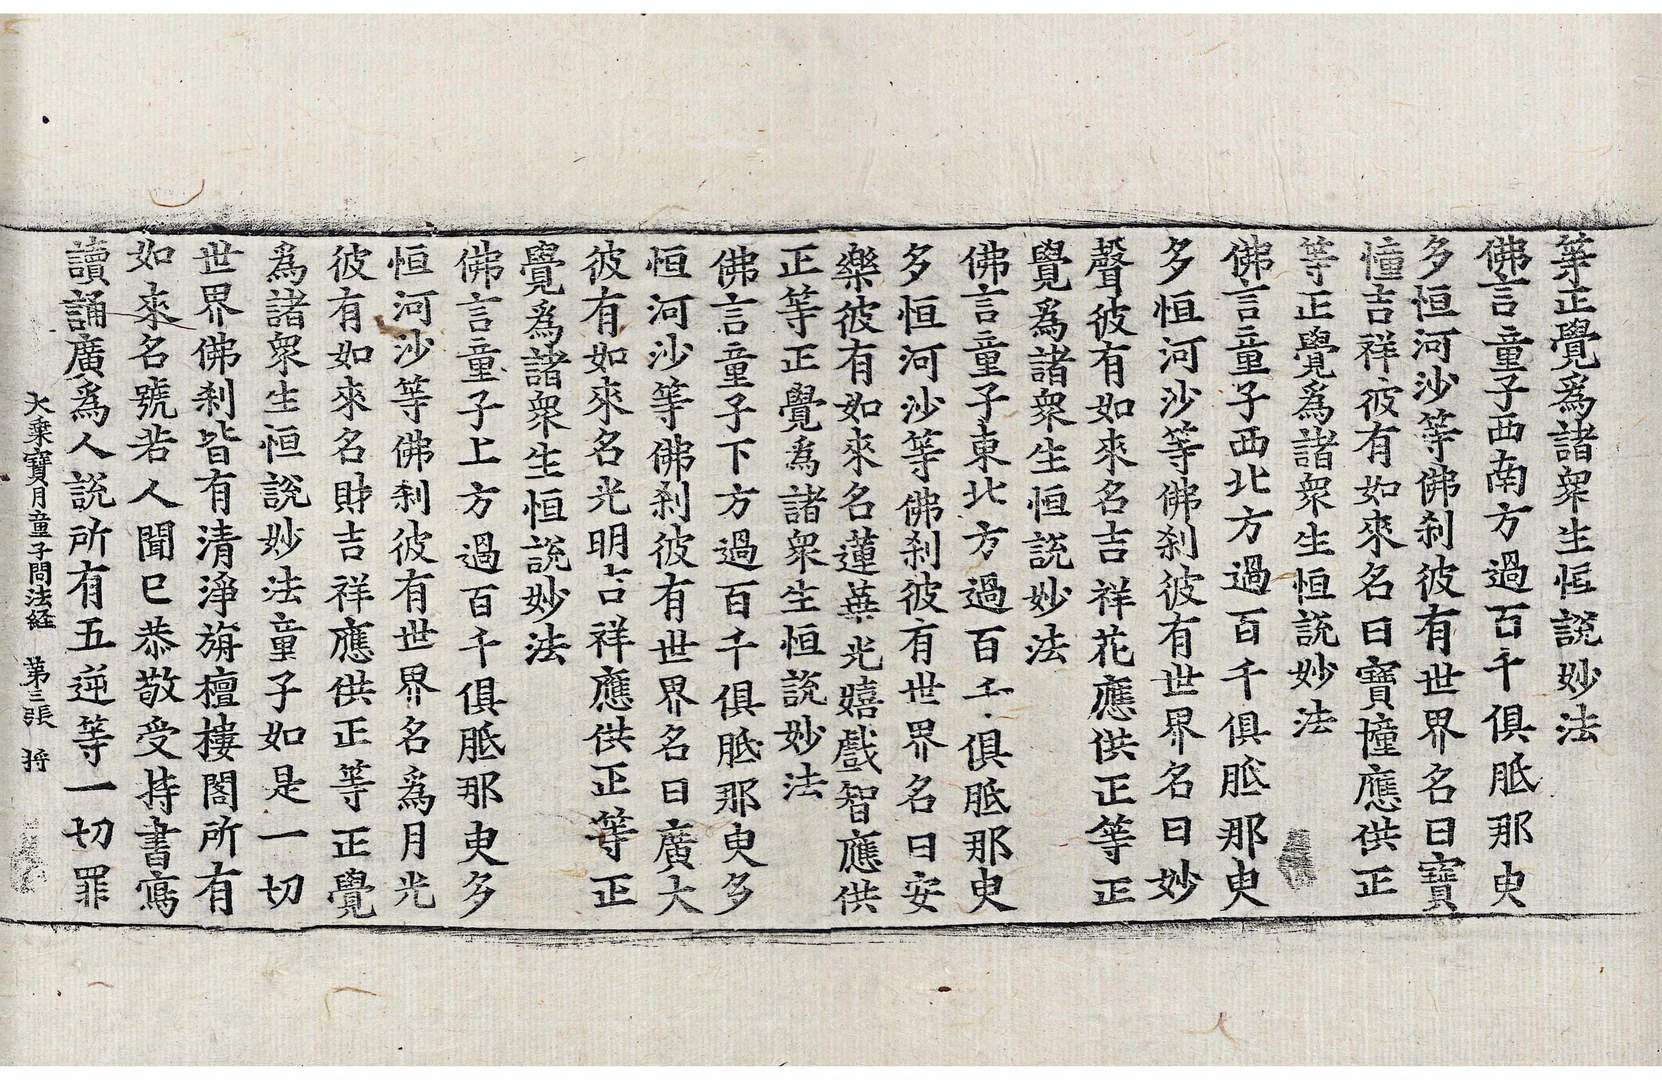 等正覺爲諸衆生恒說妙法
佛言童子西南方過百千俱胝那庾
多恒河沙等佛刹彼有世界名曰寶
幢吉祥彼有如來名曰寶幢應供正
等正覺爲諸衆生恒說妙法
佛言童子西北方過百千俱胝那庾
多恒河沙等佛刹彼有世界名曰妙
聲彼有如來名吉祥花應供正等正
覺爲諸衆生恒說妙法
佛言童子東北方過百千俱胝那庾
多恒河沙等佛刹彼有世界名曰安
樂彼有如來名蓮華光嬉戲智應供
正等正覺爲諸衆生恒說妙法
佛言童子下方過百千俱胝那庾多
恒河沙等佛刹彼有世界名曰廣大
彼有如來名光明吉祥應供正等正
覺爲諸衆生恒說妙法
佛言童子上方過百千俱胝那庾多
恒河沙等佛刹彼有世界名爲月光
彼有如來名財吉祥應供正等正覺
爲諸衆生恒說妙法童子如是一切
世界佛刹皆有清淨旃檀樓閣所有
如來名號若人聞已恭敬受持書寫
讀誦廣爲人說所有五逆等一切罪
大乗寶月童子問法経　第三張　将